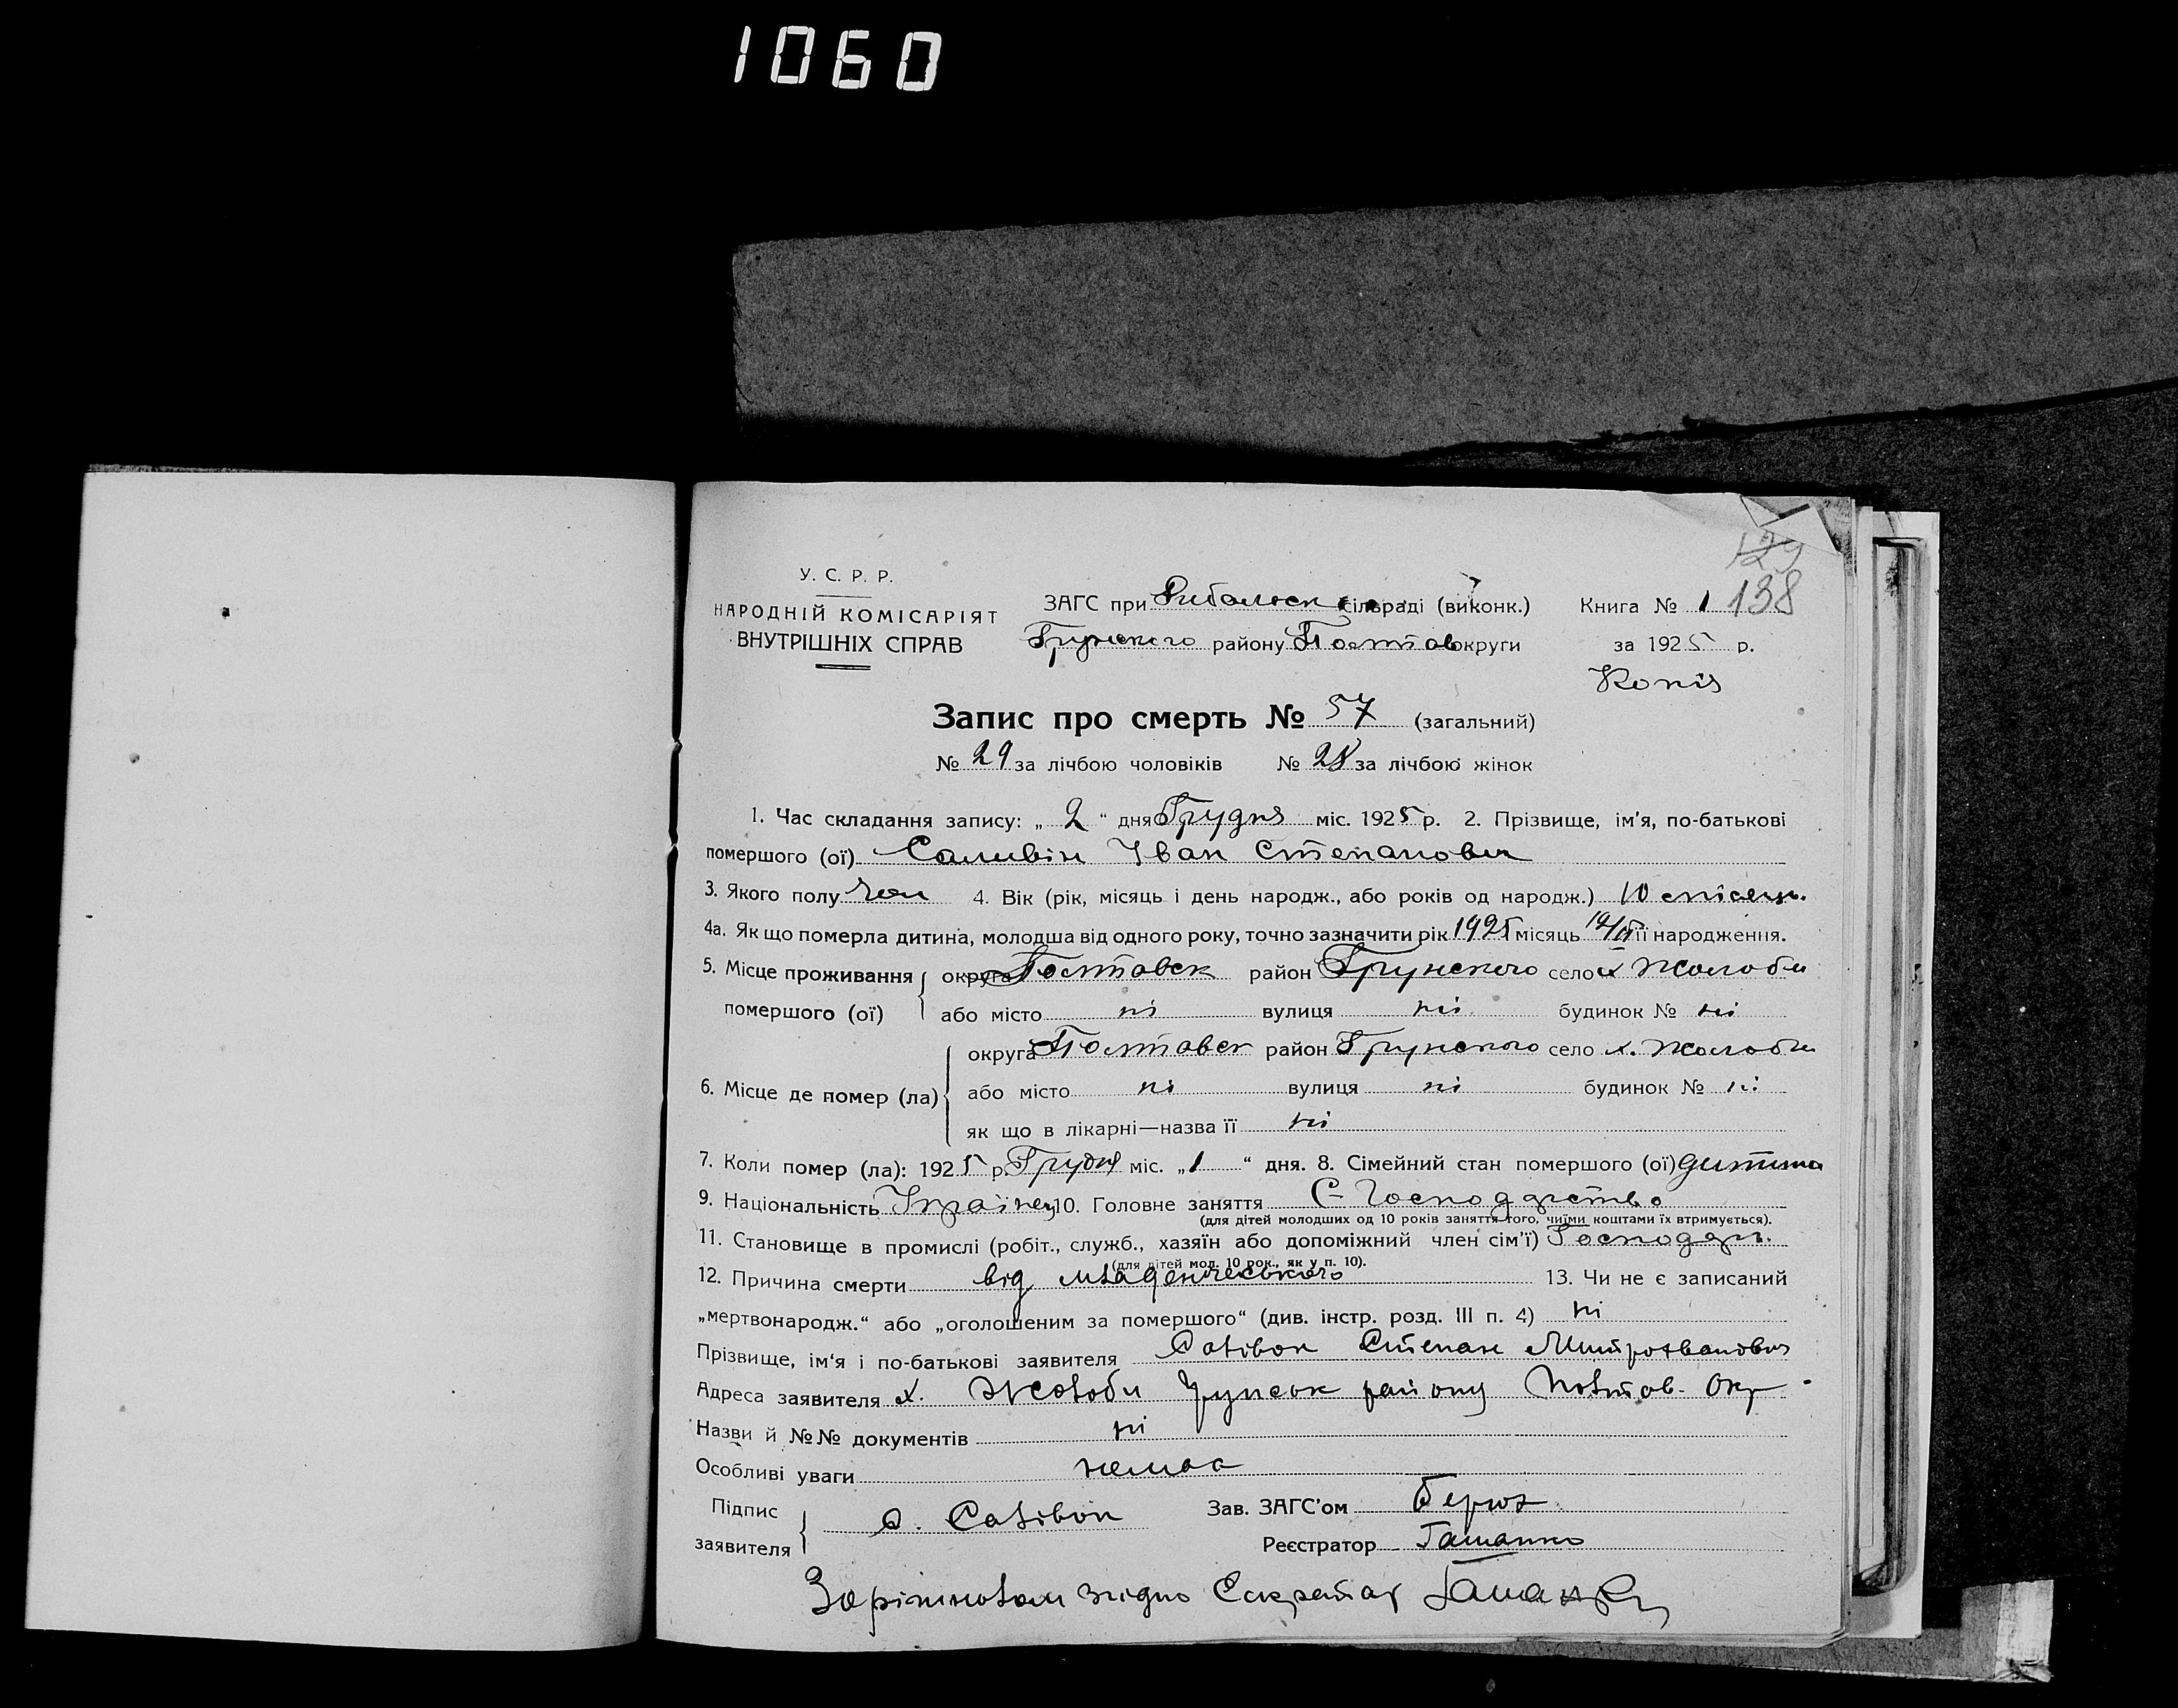 1060
129
У. С. Р. Р.
НАРОДНІЙ КОМІСАРІЯТ
ВНУТРІШНІХ СПРАВ
ЗАГС при Рибальск сільраді (виконк.)
Грунского району Полтав округи
Книга № 1 138
за 1925 р.
Копія
Запис про смерть № 57 (загальний)
№ 29 за лічбою чоловіків № 28 за лічбою жінок
1. Час складання запису: „ 2 “ дня Грудня міс. 1925 р. 2. Прізвище, ім'я, по-батькові
помершого (ої) Саливін Іван Степанович
3. Якого полу чол 4. Вік (рік, місяць і день народж., або років од народж.) 10 місяць.
4а. Як що померла дитина, молодша від одного року, точно зазначити рік 1925 місяць її народження.
5. Місце проживання округа Полтавск район Грунского село х Жолоби
помершого (ої) або місто ні вулиця ні будинок № ні
округа Полтавск район Грунского село х. Жолоби
6. Місце де помер (ла) або місто ні вулиця ні будинок № ні
як що в лікарні—назва її ні
7. Коли помер (ла): 1925 р. Грудня міс. „1“ дня. 8. Сімейний стан помершого (ої) дитина
9. Національність Українец 10. Головне заняття С-Господарство
(для дітей молодших од 10 років заняття того, чиїми коштами їх втримується).
11. Становище в промислі (робіт., служб., хазяїн або допоміжний член сім'ї) Господарь.
(для дітей мол. 10 рок., як у п. 10).
12. Причина смерти від младенческького 13. Чи не є записаний
„мертвонародж.“ або „оголошеним за помершого“ (див. інстр. розд. III п. 4) ні
Прізвище, ім'я і по-батькові заявителя Салівон Степан Митрофванович
Адреса заявителя х. Жолоби Грунськ району Полтав. Окр
Назви й №№ документів ні
Особливі уваги немає
Підпис заявителя С. Салівон
Зав. ЗАГС'ом
Реєстратор Гашанко
згідно Сакретар